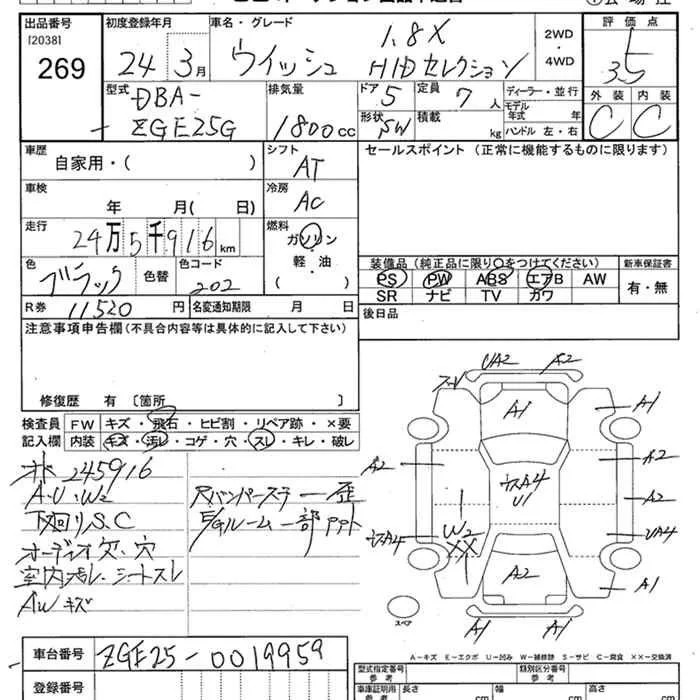 出品番号
[2038]
269
初度登録年月
24年 3月
車名・グレード
1.8X
ウイッシュ HIDセレクション
2WD
・
4WD
評価点
3.5
外装 内装
C C
型式
DBA-
ZGE25G
排気量
1800cc
ドア 5
形状 SW
定員 7人
積載 kg
ディーラー・並行
モデル年式 年
ハンドル 左・右
車歴
自家用・( )
シフト
AT
車検
年 月( 日)
冷房
AC
走行
24万5千916km
燃料
ガソリン
軽・油
( )
色
ブラック
色替
色コード
202
R券 11520円
名変通知期限 月 日
セールスポイント (正常に機能するものに限ります)
装備品 (純正品に限り○をつけてください)
PS PW ABS エアB AW
SR ナビ TV カワ
新車保証書
有・無
後日品
注意事項申告欄(不具合内容等は具体的に記入して下さい)
修復歴 有 〔箇所 〕
検査員記入欄
FW キズ・飛石・ヒビ割・リペア跡・×要
内装 キズ・汚レ・コゲ・穴・スレ・キレ・破レ
245916
A.U.W2
下廻りS.C
オーディオ欠、穴
室内汚レ、シートスレ
AWキズ
Rバンパーステー歪
E/Gルーム一部ppt
UA2 A2
A1 A1
A2 A2
A2
A4
U1
W2
XX
UA4
A2 A1
A1 A1
スペア
A-キズ E-エクボ U-凹み W-補修跡 S-サビ C-腐食 XX-交換済
車台番号 ZGE25-0019959
登録番号
型式指定番号 参考
類別区分番号 参考
車庫証明用 参考
長さ cm 幅 cm 高さ cm